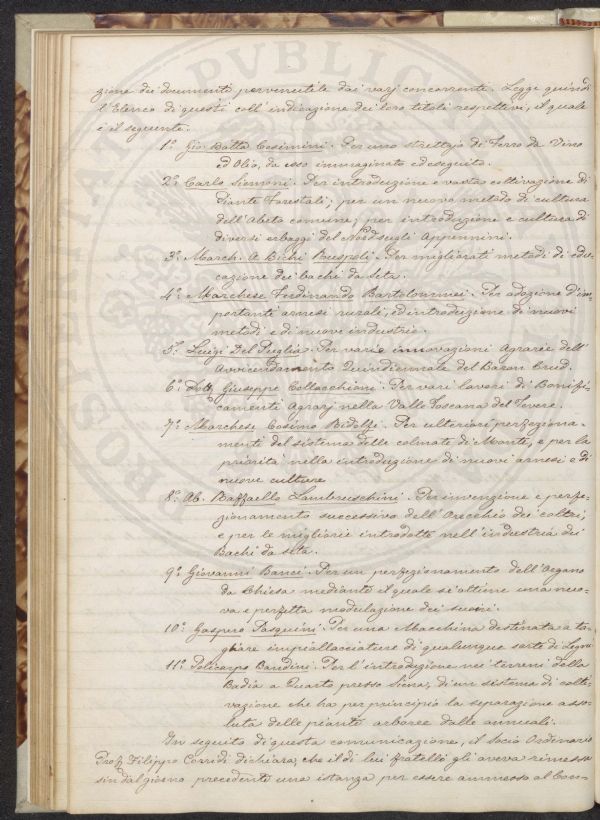 zione dei documenti pervenutile dai varj concorrenti. Legge quindi
l'Elenco di questi coll'indicazione dei loro titoli respettivi, il quale
è il seguente.
1.º Gio. Batta Cosimini. Per uno strettojo di Ferro da Vino
ed Olio, da esso immaginato ed eseguito.
2.º Carlo Siemoni. Per introduzione e vasta coltivazione di
Piante Forestali; per un nuovo metodo di cultura
dell'Abeto comune; per introduzione e cultura di
diversi erbaggi del Nord sugli Appennini.
3.º March. Bichi Ruspoli. Per migliorati metodi di edu-
cazione dei bachi da seta.
4.º Marchese Ferdinando Bartolommei. Per adozione d'im-
portanti arnesi rurali, ed introduzione di nuovi
metodi e di nuove industrie.
5.º Luigi Del Puglia. Per varie innovazioni Agrarie dell'
Avvicendamento Quindiennale del Baron Crud.
6.º Dott. Giuseppe Collacchioni. Per vari lavori di Bonifi-
camenti Agrarj nella Valle Toscana del Tevere.
7.º Marchese Cosimo Ridolfi. Per ulteriori perfeziona-
menti del sistema delle colmate di Monte, e per la
priorità nella introduzione di nuovi arnesi e di
nuove culture
8.º Ab. Raffaello Lambruschini. Per invenzione e perfe-
zionamento successivo dell'Orecchio dei coltri,
e per le migliorie introdotte nell'industria dei
Bachi da seta.
9.º Giovanni Banci. Per un perfezionamento dell'Organo
da Chiesa mediante il quale si ottiene una nuo-
va e perfetta modulazione dei suoni.
10.º Gaspero Pasquini. Per una Macchina destinata a ta-
gliare impiallacciature di qualunque sorte di Legni
11.º Policarpo Bandini. Per l'introduzione nei terreni della
Badia a Quarto presso Siena, di un sistema di colti-
vazione che ha per principio la separazione asso-
luta delle piante arboree dalle annuali.
In seguito di questa comunicazione, il Socio Ordinario
Prof. Filippo Corridi dichiara, che il di lui fratello gli aveva rimessa
sin dal giorno precedente una istanza per essere ammesso al Con-